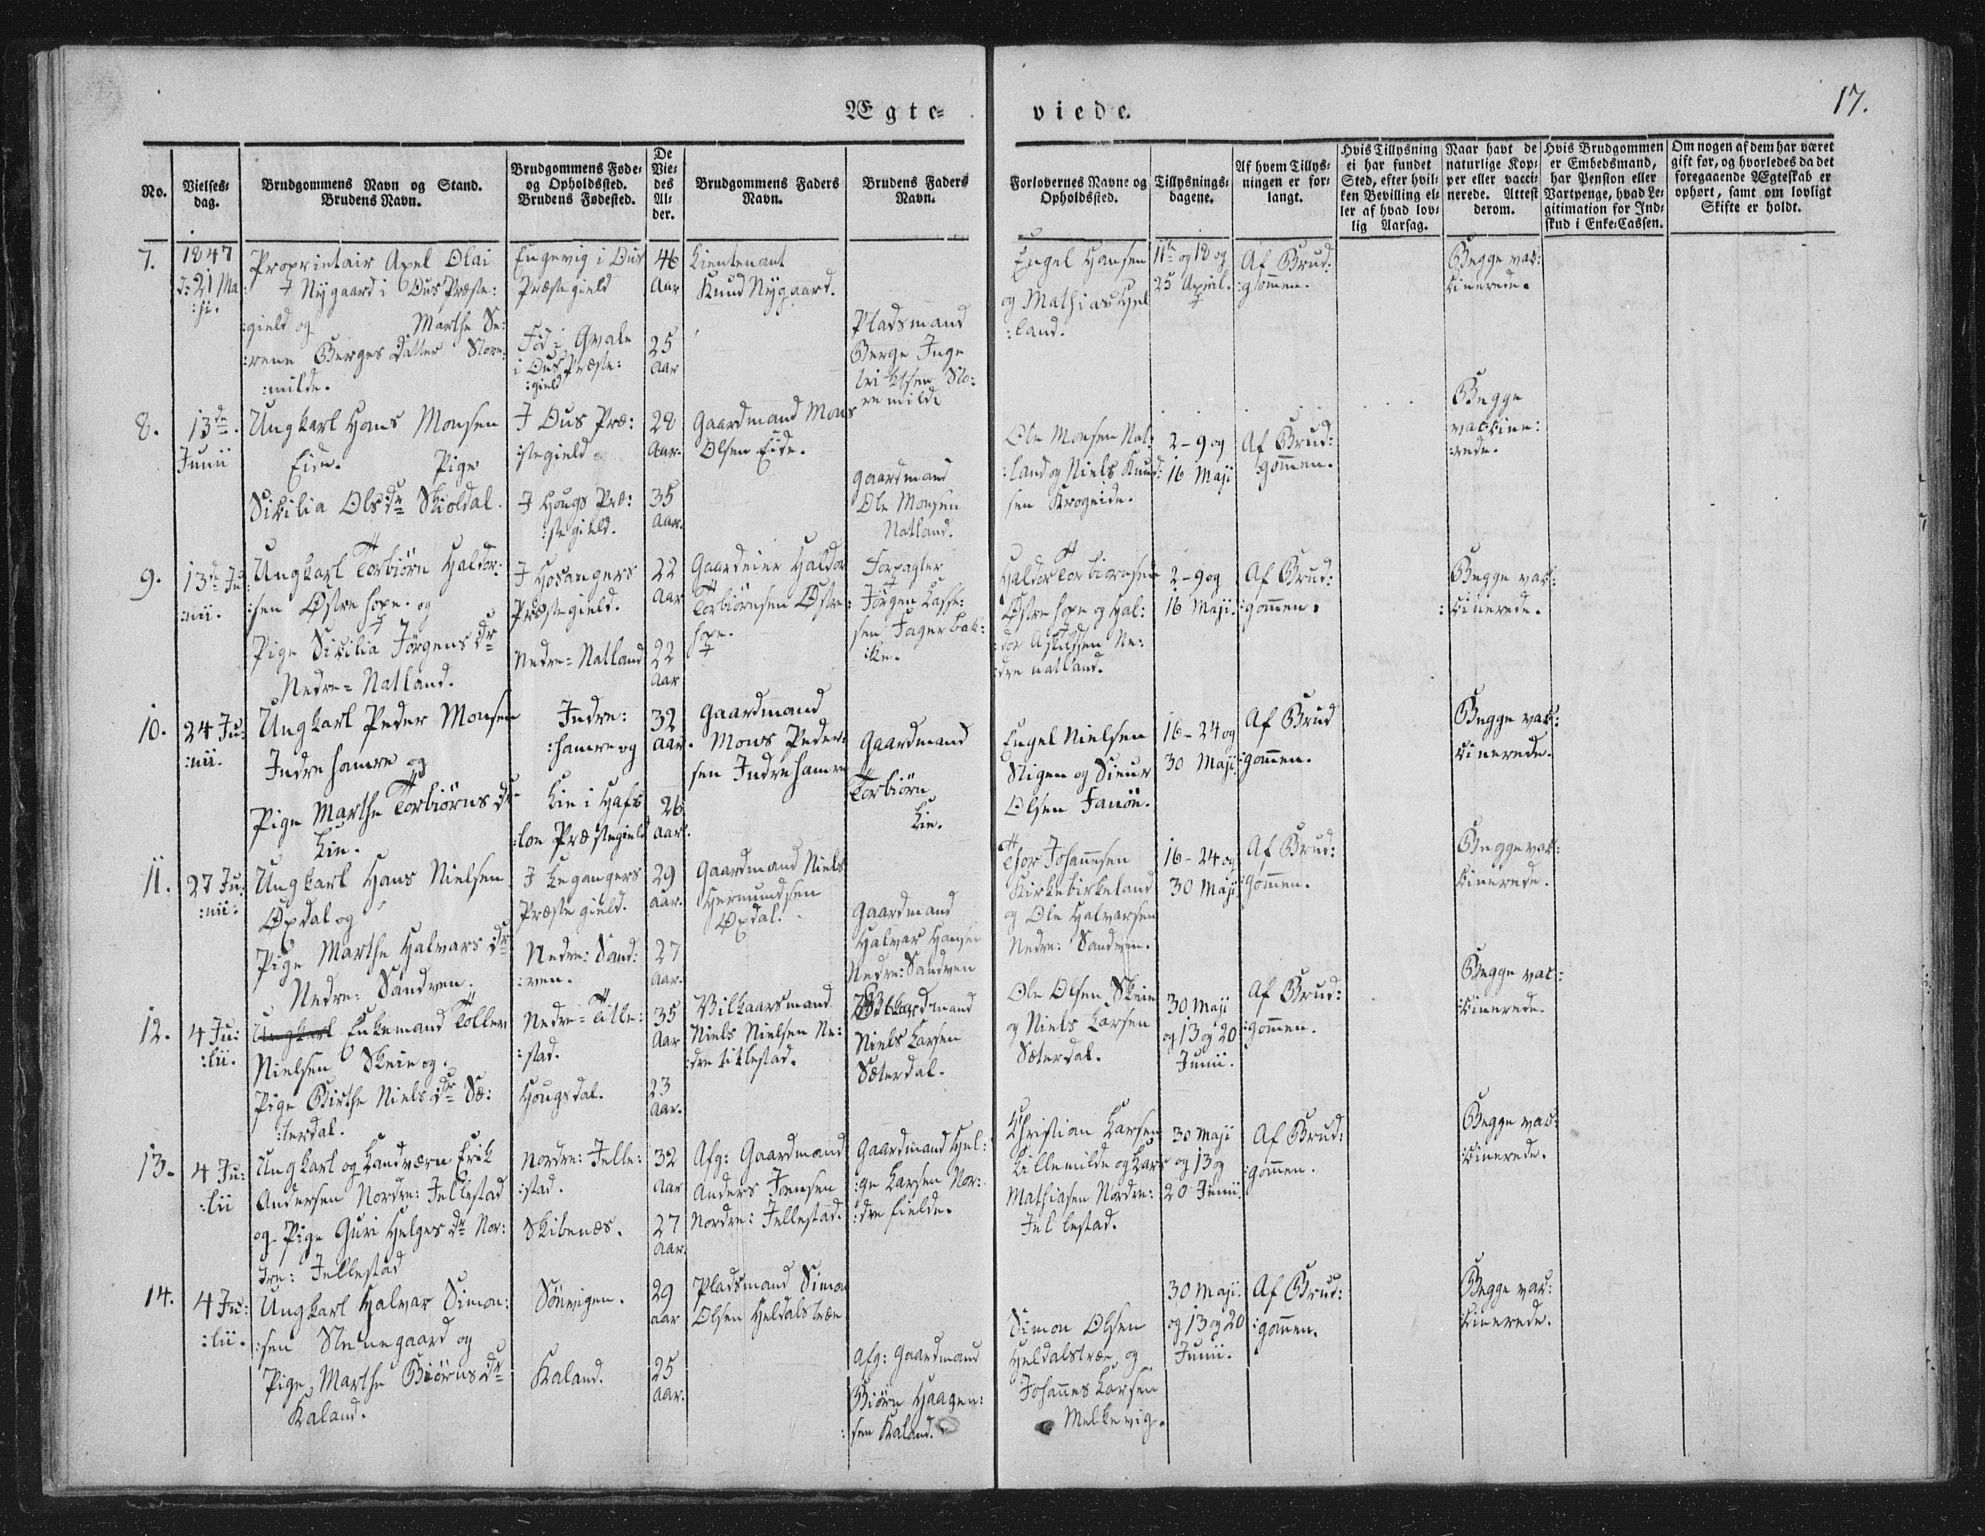 Ægte-
viede.
17.
No.
Vielses-
dag.
Brudgommens Navn og Stand.
Brudens Navn.
Brudgommens Føde-
og Opholdssted.
Brudens Fødested.
De
Vie-
des
Al-
der.
Brudgommens Faders
Navn.
Brudens Faders
Navn.
Forlovernes Navne og
Opholdssted.
Tillysnings-
dagene.
Af hvem Tillys-
ningen er for-
langt.
Hvis Tillysning
ei har fundet
Sted, efter hvil-
ken Bevilling el-
ler af hvad lov-
lig Aarsag.
Naar havt de
naturlige Kop-
per eller vacci-
nerede. Attest
derom.
Hvis Brudgommen
er Embedsmand,
har Pension eller
Vartpenge, hvad Le-
gitimation for Ind-
skud i Enke-Cassen.
Om nogen af dem har været
gift før, og hvorledes da det
foregaaende Ægteskab er
ophørt, samt om lovligt
Skifte er holdt.
7.
1847
d: 21 Ma
:ji.
Proprietair Axel Olai
I Nygaard i Ous Præste:
:gield og Marthe Se:
:rene Berges Datter Store:
:milde.
Engevig i Ous
Præstegield
Fød i Qvale
i Ous Præste:
:gield
46
Aar
25
Aar
Lieutenant
Knud Nygaard.
Pladsmand
Berge Inge
briktsen Sto:
re milde
Engel Hansen
og Mathias Hel
:land.
11te og 18 og
25 April.
Af Brud:
:gommen.
Begge vac:
:cinerede.
8.
13de
Junii
Ungkarl Hans Monsen
Eide. Pige
Sicilia Olsdr Skioldal.
I Ous Præ:
:stegield
I Hougs Præ:
:stegield.
28
Aar.
35
Aar.
Gaardmand Mons
Olsen Eide.
Gaardmand
Ole Monsen
Natland.
Ole Monsen Nat:
:land og Niels Knud:
sen Krogeide.
2-9 og
16 Maji
Af Brud:
:gommen.
Begge
vaccine:
:rede.
9.
13de Ju:
:nii.
Ungkarl Torbiørn Haldor:
:sen Østrehope. og
Pige Sicilia Jørgens dr
Nedre=Natland.
I Hosangers
Præstegield.
Nedre=Natland
22
Aar
22
Aar
Gaardeier Haldor
Torbiørnsen Østre:
hope.
Forpagter
Jørgen Lasse:
sen Fagerbak:
:ke.
Haldor Torbiørnsen
Østre hope og Hal:
:dor Askildsen Ne:
:dre natland.
2-9 og
16 Maji.
Af Brud:
:gommen.
Begge vac:
:cinerede.
10.
24 Ju:
:nii.
Ungkarl Peder Monsen
Indre hamre og
Pige Marthe Torbiørns dr
Lie.
Indre:
:hamre og
Lie i Hafs
:loe Præstegield
32
Aar.
26
Aar.
Gaardmand
Mons Peder:
sen Indrehamre
Gaardmand
Torbiørn
Lie.
Engel Nielsen
Stigen og Sieur
Olsen Fanøe.
16-24 og
30 Maji
Af Brud
:gommen.
Begge vac:
:cinerede.
11.
27 Ju:
:nii.
Ungkarl Hans Nielsen
Opdal og
Pige Marthe Halvars dr
Nedre: Sandven.
I Legangers
Præstegield.
Nedre: Sand:
:ven.
29
Aar.
27
Aar.
Gaardmand Niels
Hermundsen
Opdal.
Gaardmand
Halvar Hansen
Nedre: Sandven
Thor Johannesen
Kirkebirkeland
og Ole Halvarsen
Nedre: Sandven.
16-24 og
30 Maji
Af Brud:
:gommen.
Begge vac:
:cinerede.
12.
4 Ju:
:lii.
Ungkarl Enkemand Tollev
Nielsen Skeie og
Pige Birthe Niels dr Sæ:
:terdal.
Nedre=Title:
:stad.
Hougsdal.
35
Aar
23
Aar.
Vilkaarsmand
Niels Nielsen Ne:
:dre titlestad.
Gaardmand
Niels Larsen
Sæterdal.
Ole Olsen Skeie
og Niels Larsen
Sæterdal.
30 Maji
og 13 og 20
Junii.
Af Brud:
:gommen.
Begge vac:
:cinerede.
13.
4 Ju:
:lii
Ungkarl og Landværn Erik
Andersen Nordre: Jellestad
og Pige Guri Helges dr Nor:
dre: Jellestad
Nordre: Jelle:
:stad.
Skibenæs.
32
Aar
27
Aar.
Afg: Gaardmand
Anders Joensen
Nordre: Jellestad.
Gaardmand Hel:
:ge Larsen Nor:
:dre fielde.
Christian Larsen
Lillemilde og Lars
Mathiasen Nordre:
Jellestad.
30 Maji
og 13 og
20 Junii.
Af Brud:
:gommen.
Begge vac:
:cinerede.
14.
4 Ju:
:lii.
Ungkarl Halvar Simon:
:sen Stenegaard og
Pige Marthe Biørns dr
Kaland.
Sørvigen.
Kaland.
29
aar
25
Aar.
Pladsmand Simon
Olsen Heldalstræe
Afg: Gaardmand
Biørn Haagen:
:sen Kaland.
Simon Olsen
Heldalstræe og
Johannes Larsen
Melkevig.
30 Maji.
og 13 og 20
Junii.
Af Brud:
:gommen.
Begge vac:
:cinerede.